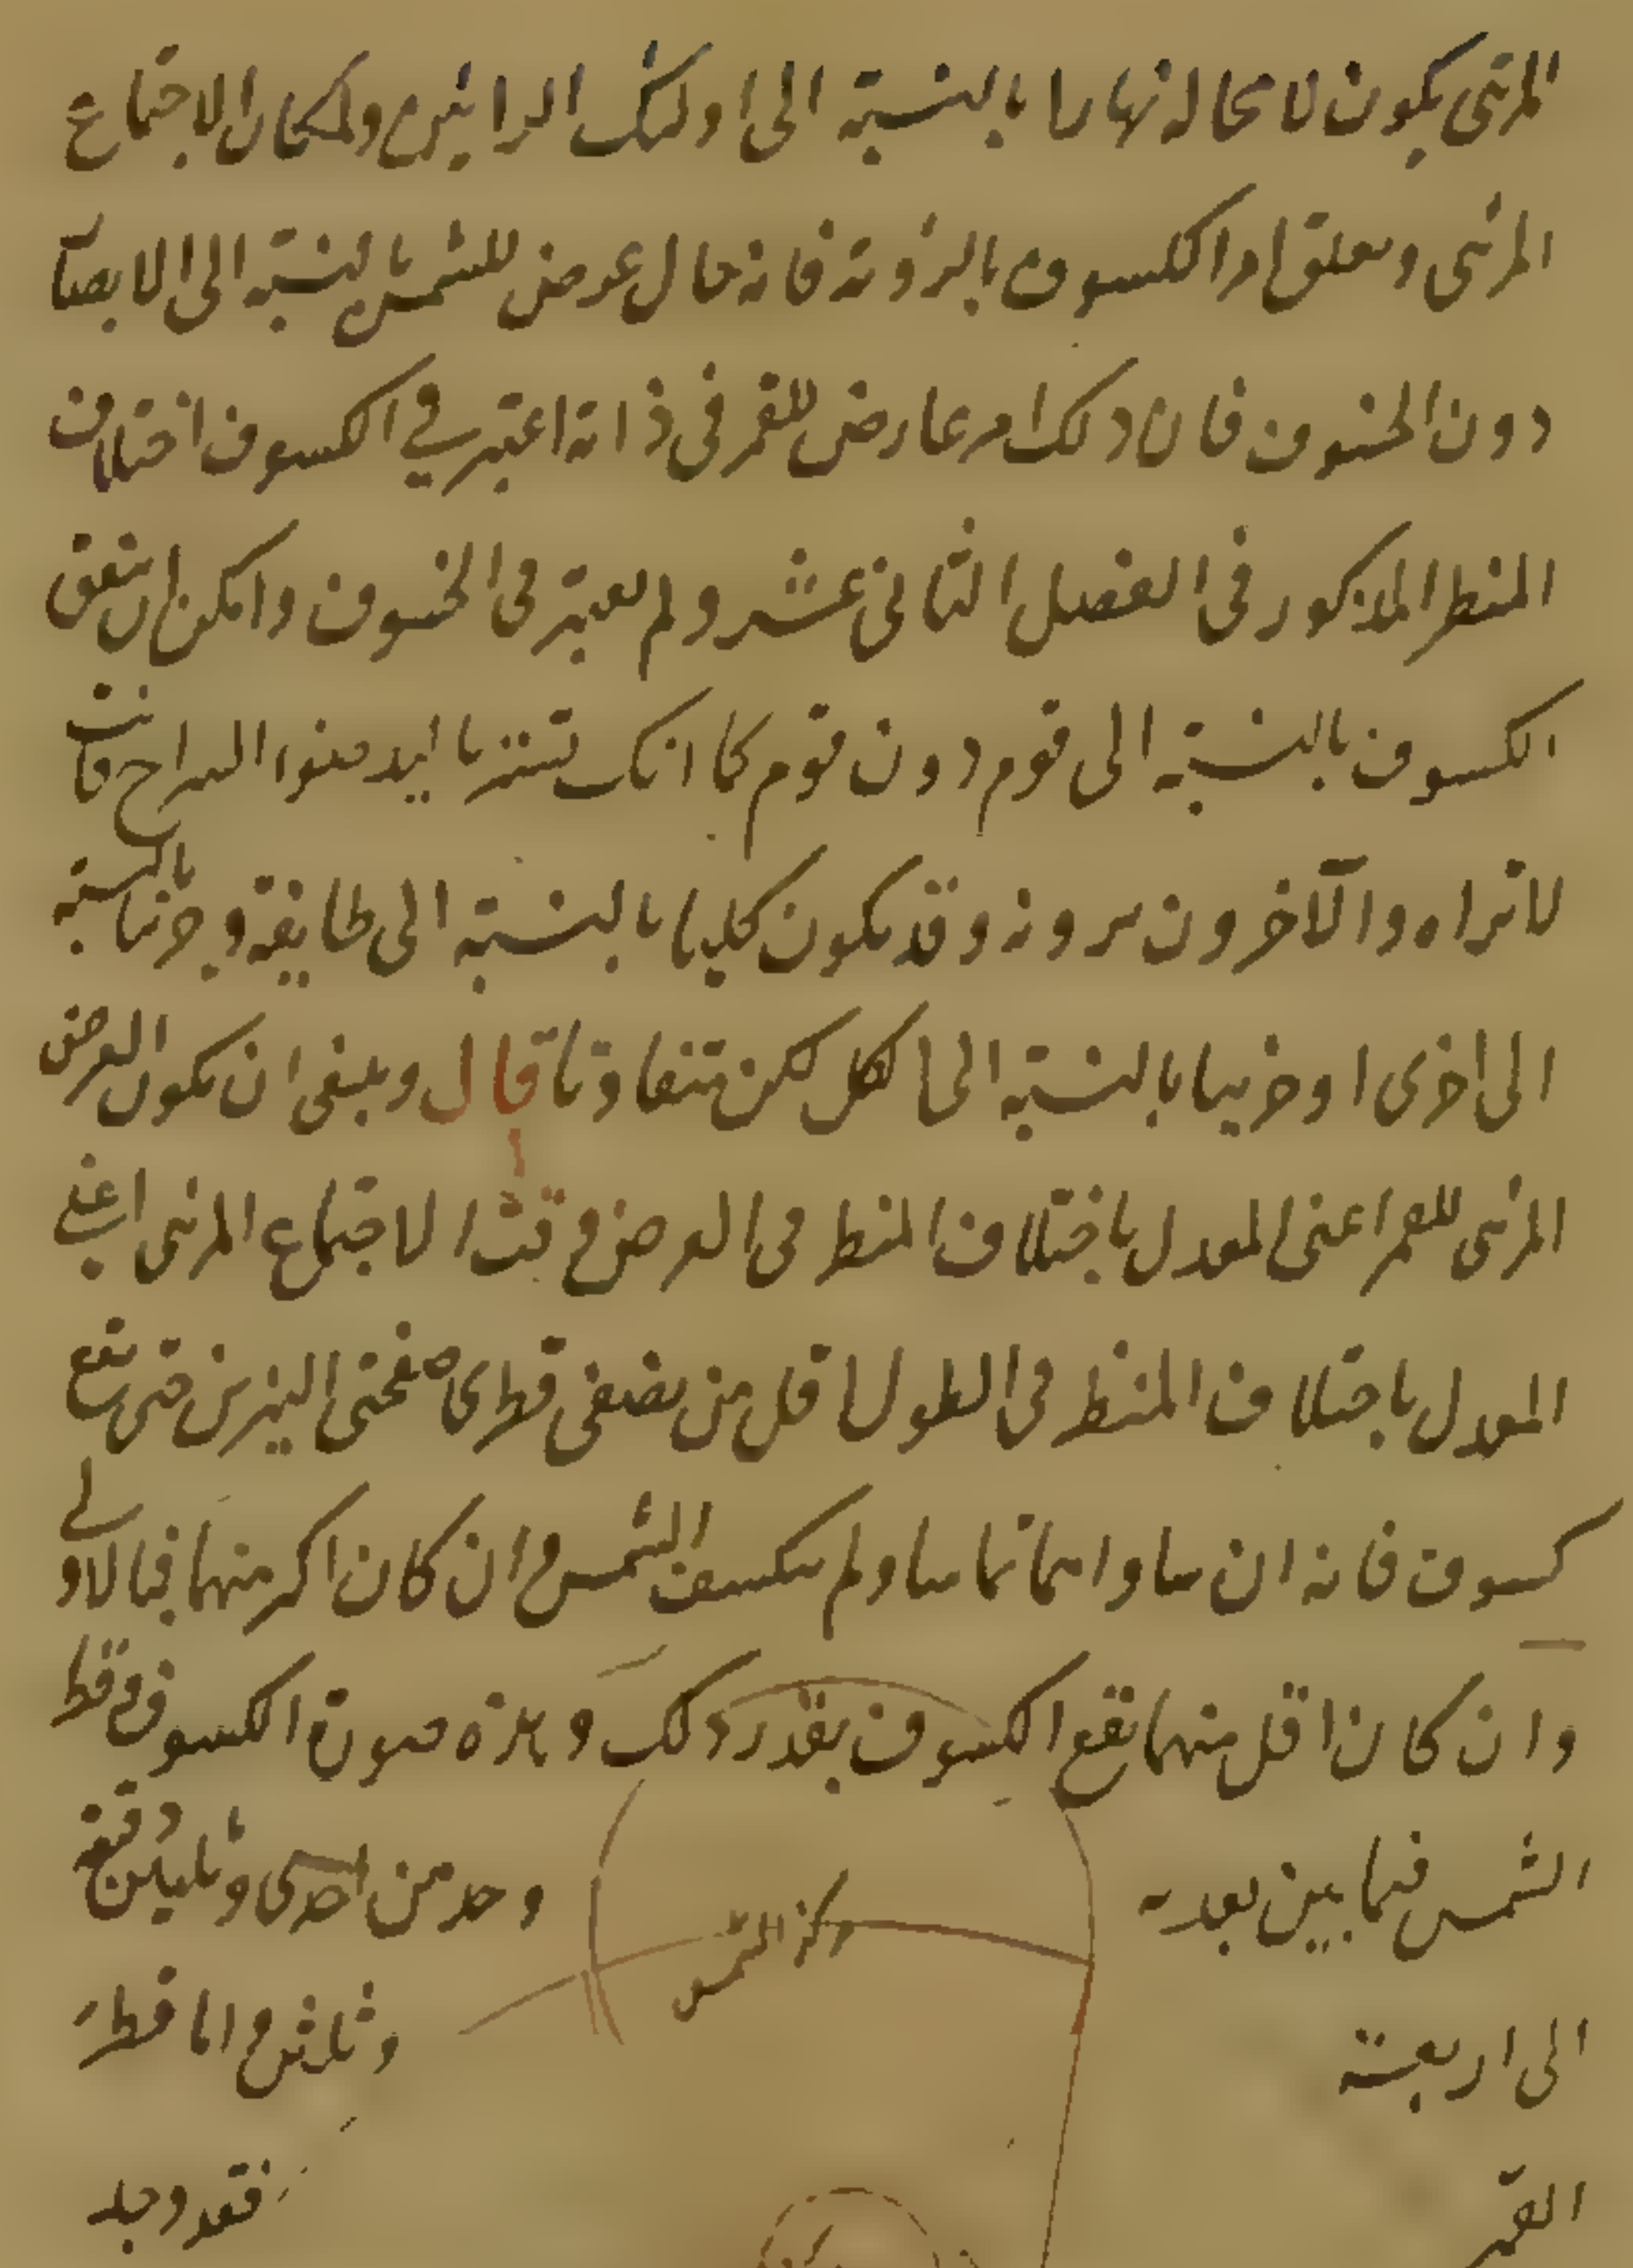 المرئى يكون لا محالة نهارا بالنسبة الى اولئك الرائين ولمكان الاجتماع
المرئى وتعلق امر الكسوف بالرؤية فانه حال عرض للشمس بالنسبة الى الابصار
دون الخسوف فان ذلك امر عارض للقمر فى ذاته اعتبر في الكسوف اختلاف
المنظر المذكور فى الفصل الثانى عشر ولم يعتبر فى الخسوف وامكن ان يتفق
الكسوف بالنسبة الى قوم دون قوم كما انك تستتر باليد ضوء السراج فانت
لا تراه والآخرون يرونه وقد يكون كليا بالنسبة الى طايفة وجزئيا بالنسبة
الى اخرى او جزئيا بالنسبة الى الكل لكن متفاوتا قال وينبغى ان يكون العرض
المرئى للقمر اعنى المعدل باختلاف المنظر فى العرض وقت الاجتماع المرئى اعنى
المعدل باختلاف المنظر فى الطول اقل من نصفى قطرى صفحتى النيرين حتى يقع
كسوف فانه ان ساواهما تماسا ولم ينكسف الشمس وان كان اكثر منهما فبالاولى
وان كان اقل منهما يقع الكسوف بقدر ذلك وهذه صورة الكسوف وقطر
الشمس فيما بين بعديه وجد من احدى وثلثين دقيقة
مركز الشمس
الى اربعة وثلثين واما قطر
القمر فقد وجد